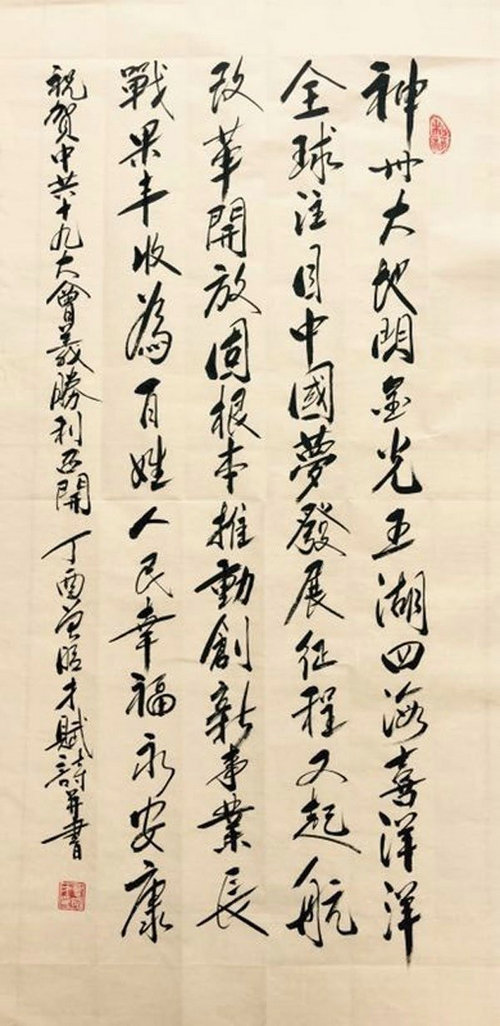 神州大地閃金光五湖四海喜洋洋
全球注目中國夢發展征程又起航
改革開放固根本推動創新事業長
戰果丰收為百姓人民幸福永安康
祝贺中共十九大會義勝利召開 丁酉昭才賦詩并書